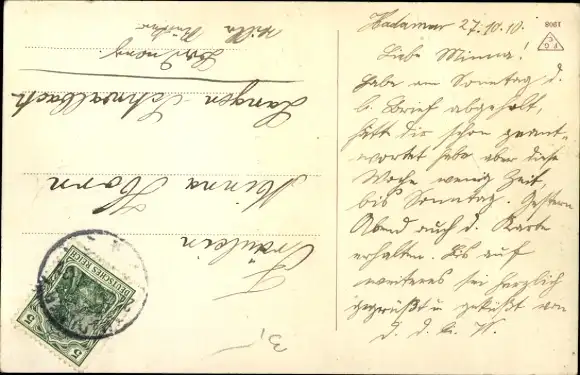 Hadamar 27.10.10.
Liebe Minna!
Habe am Sonntag d.
l. Brief abgeholt,
hätte dir schon geant-
wortet habe aber diese
Woche wenig Zeit,
bis Sonntag. Gestern
Abend auch d. Karte
erhalten. Bis auf
weiteres sei herzlich
gegrüßt u. geküßt von
d. d. l. W.
Fräulein
Minna Horn
Langen-Schwalbach
Villa
1908
DEUTSCHES REICH
5
5
3,-